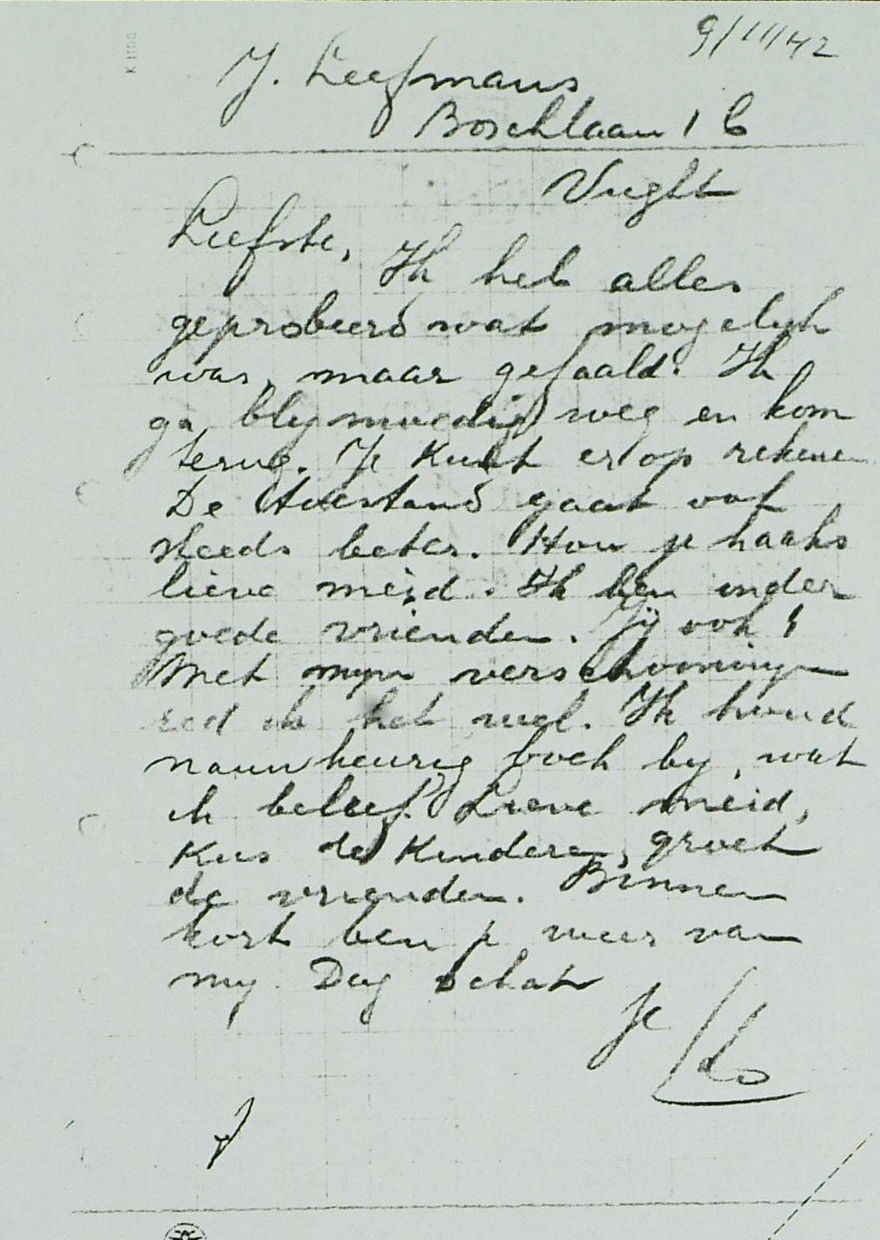 K 1108
9/11/42
J. Leefmans
Boschlaan 1 C
Vught
Liefste,
Ik heb alles
geprobeerd wat mogelyk
was, maar gefaald. Ik
ga blymoedig weg en kom
terug. Je kunt er op rekenen
De toestand gaat ook
steeds beter. Hou je haaks
lieve meid. Ik ben onder
goede vrienden. Jÿ ook!
Met myn verschooningen
red ik het wel. Ik houd
nauwkeurig boek by, wat
ik beleef. Lieve meid,
Kus de Kinderen, groet
de vrienden. Binnen
kort ben je weer van
my. Dag schat
Je